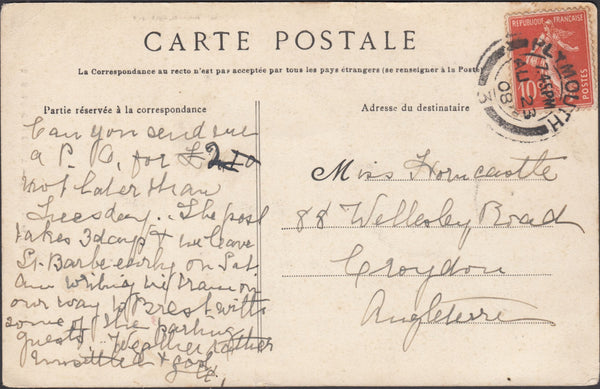 CARTE POSTALE
La Correspondance au recto n'est pas acceptée par tous les pays étrangers (se renseigner à la Poste)
Partie réservée à la correspondance
Adresse du destinataire
REPUBLIQUE FRANÇAISE
10
POSTES
PLYMOUTH
AU 23
08
3
Can you send me
a P.O. for £2
not later than
Tuesday.. The post
takes 3 days & we leave
St. Barbe early on Sat.
Am writing in train on
our way to Brest with
some of the parting
guests. Weather rather
unsettled & good
Miss Horncastle
88 Wellesley Road
Croydon
Angleterre